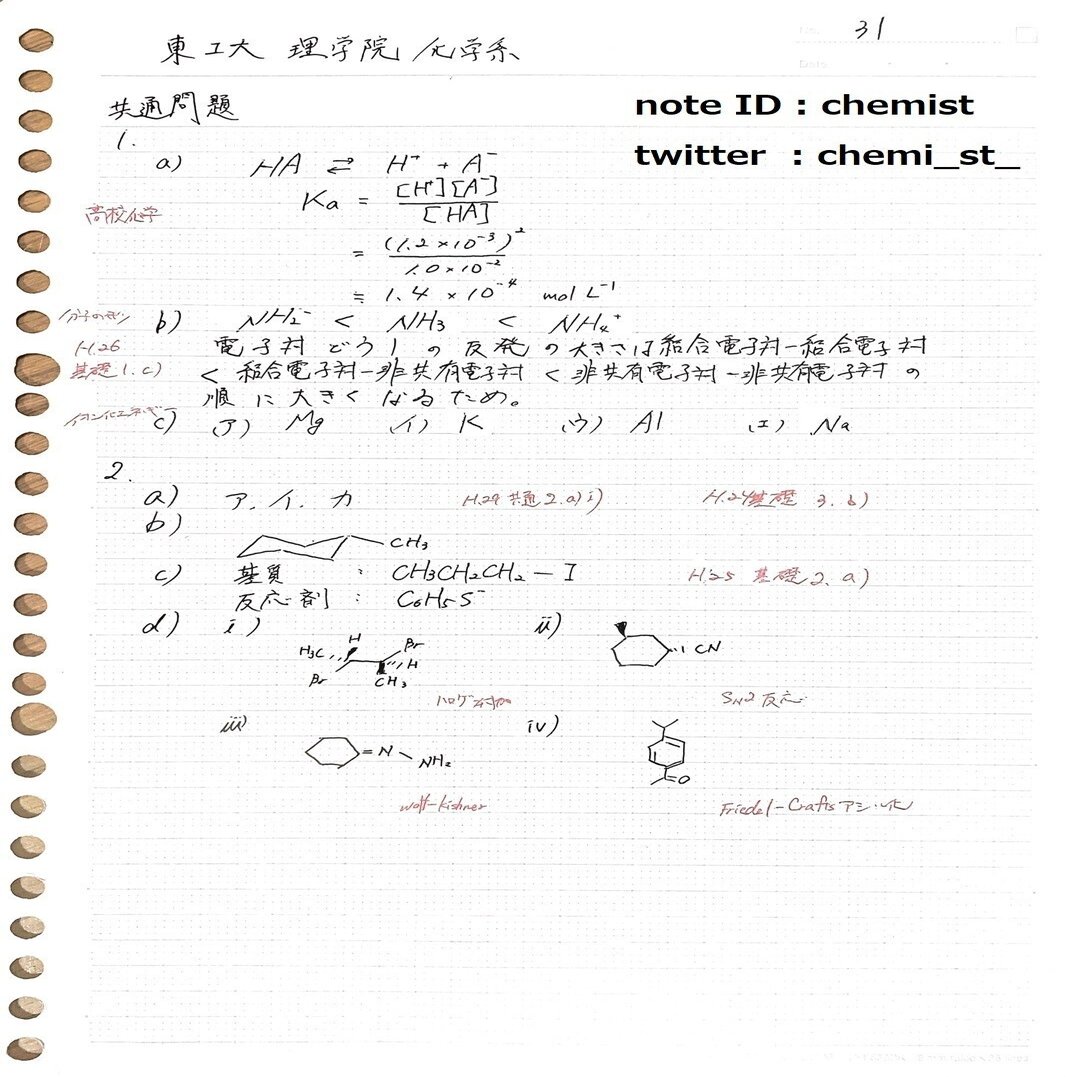 31
東工大 理学院 化学系
note ID : chemist
twitter : chemi_st_
共通問題
1.
a) HA ⇄ H⁺ + A⁻
高校化学
Ka = [H⁺][A⁻] / [HA]
= (1.2×10⁻³)² / 1.0×10⁻²
≒ 1.4 × 10⁻⁴ mol L⁻¹
b) NH₂⁻ < NH₃ < NH₄⁺
H.26
基礎1.c)
電子対どうしの反発の大きさは結合電子対-結合電子対
< 結合電子対-非共有電子対 < 非共有電子対-非共有電子対の
順に大きくなるため。
イオン化エネルギー
c) (ア) Mg (イ) K (ウ) Al (エ) Na
2.
a) ア、イ、カ H.29 共通2.a)i) H.24基礎 3.b)
b)
CH₃
c) 基質 : CH₃CH₂CH₂-I H.25 基礎2.a)
反応剤 : C₆H₅S⁻
d) i) ii)
H₃C H Br
Br CH₃ H
CN
ハロゲン付加 SN2反応
iii) iv)
=N-NH₂
=O
wolff-kishner Friedel-Craftsアシル化